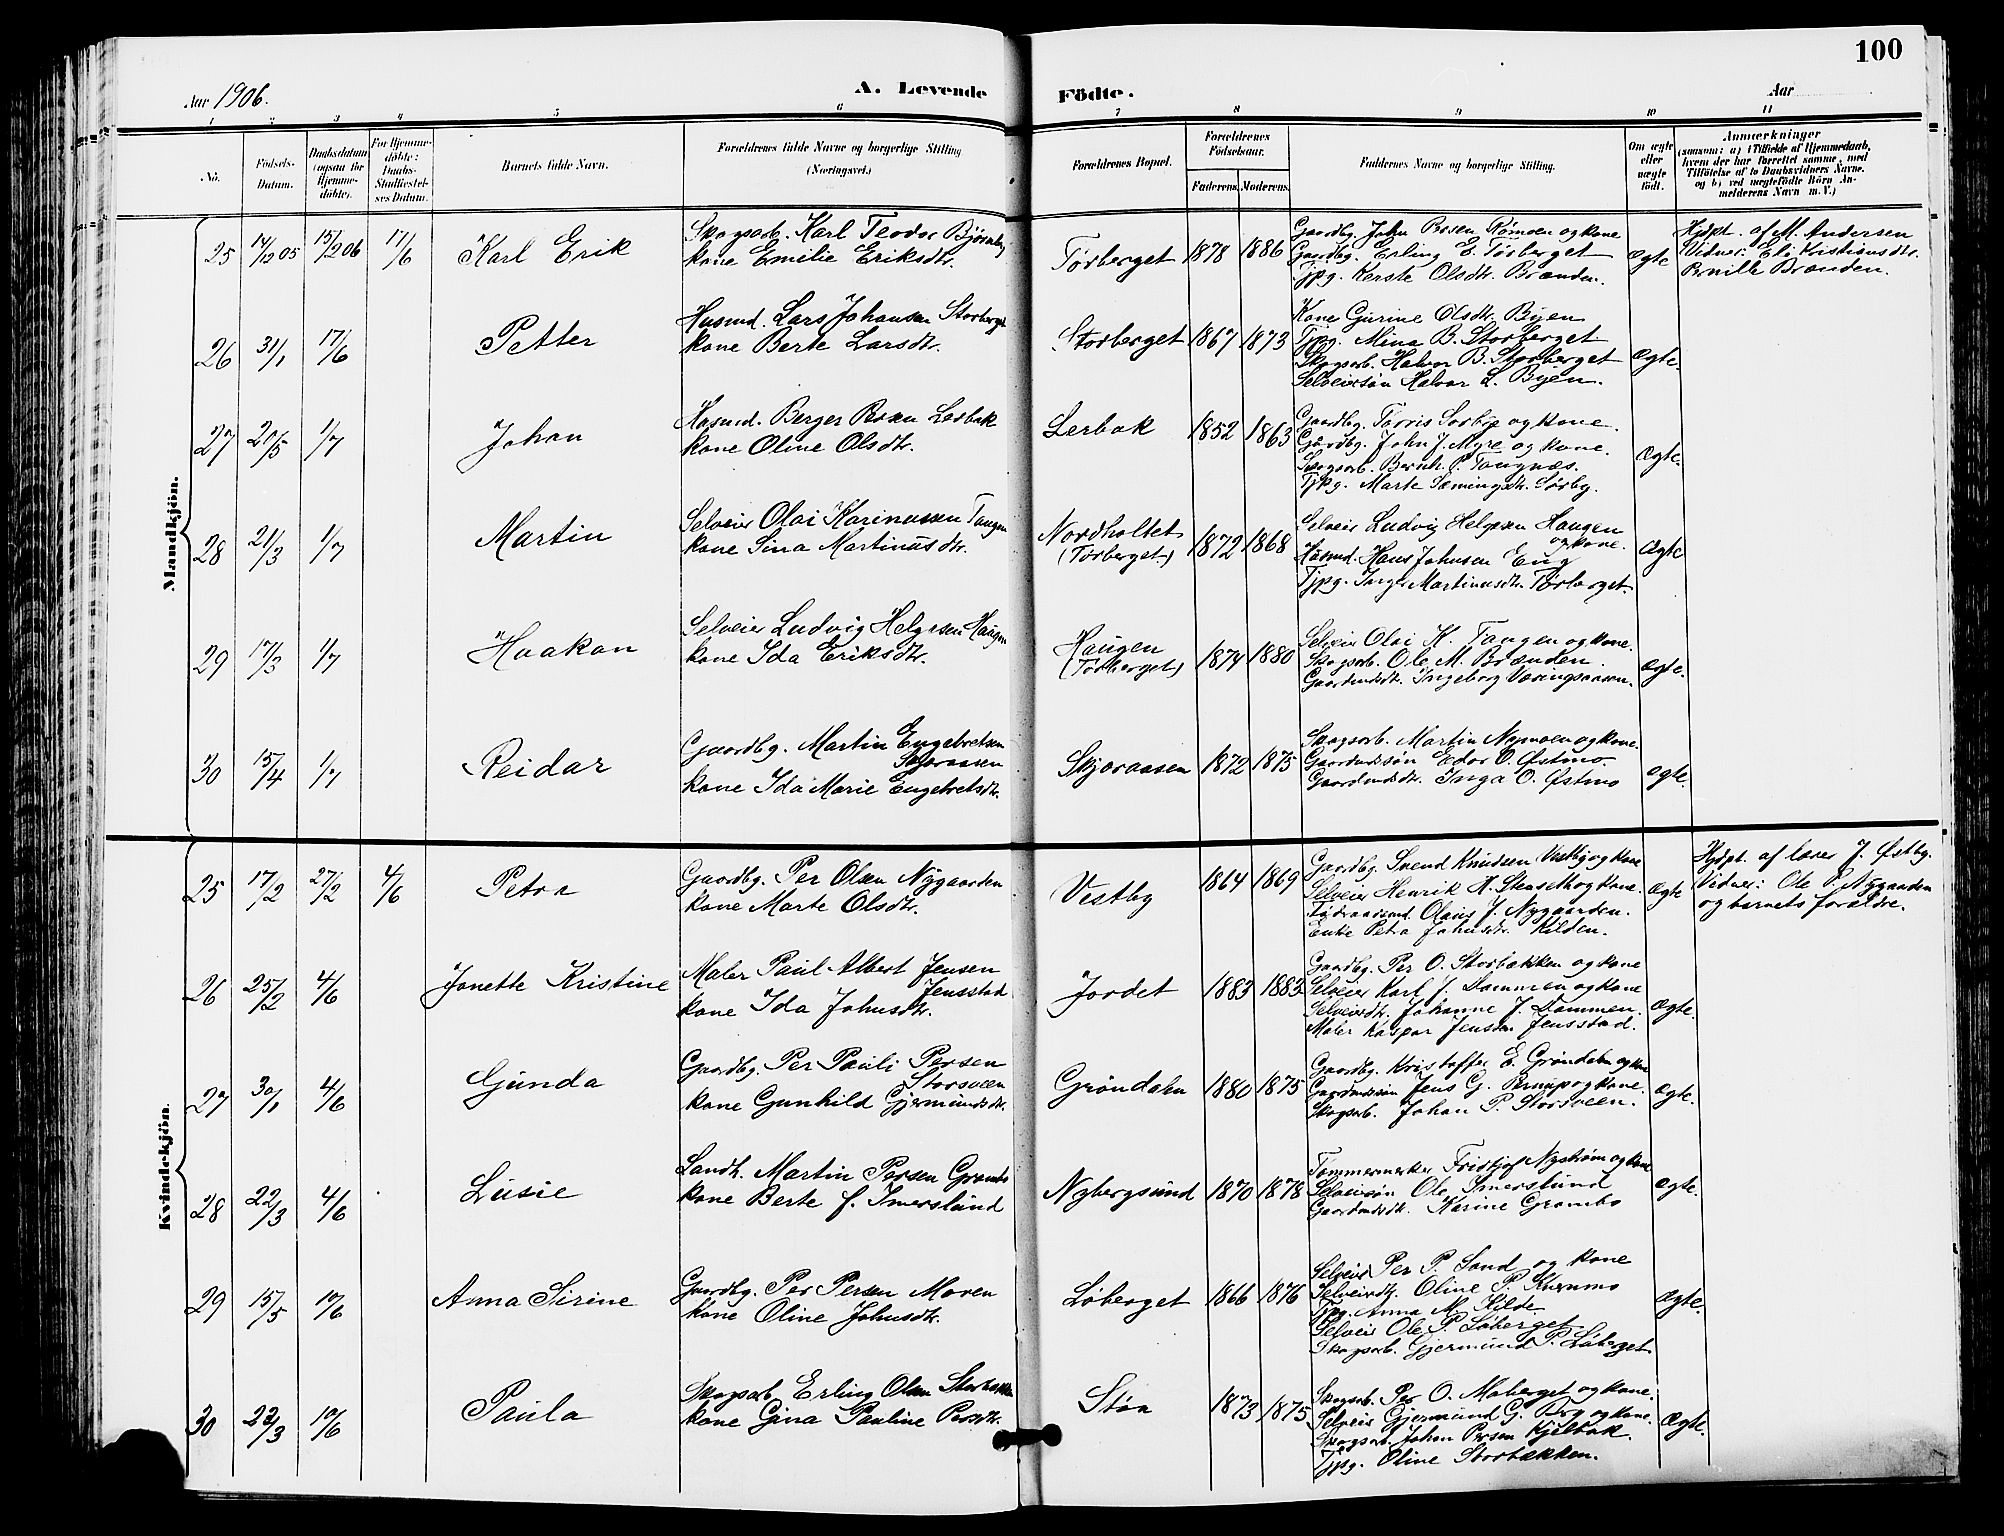 100
Aar 1906.
A. Levende
Födte.
Aar
1 2 3 4 5 6 7 8 9 10 11
No.
Födsels-
Datum.
Daabsdatum
(ogsaa for
Hjemme-
döbte).
For Hjemme-
döbte:
Daabs-
Stadfæstel-
ses Datum.
Barnets fulde Navn.
Forældrenes fulde Navne og borgerlige Stilling
(Næringsvei.)
Forældrenes Bopæl.
Forældrenes
Födselsaar.
Faderens.
Moderens.
Faddernes Navne og borgerlige Stilling.
Om ægte
eller
uægte
födt.
Anmærkninger
(saasom: a) i Tilfælde af Hjemmedaab,
hvem der har forrettet samme, med
Tilföielse af to Daabsvidners Navne,
og b) ved uægtefödte Börn An-
melderens Navn m. V.)
Mandkjön.
25 14/12 05 15/2 06 17/6 Karl Erik
Skogsarb. Karl Teodor Bjørnby
kone Emilie Eriksdtr.
Tørberget 1878 1886
Gaardbg. John Persen Rømoen og kone
Gaardbg. Erling E. Tørberget
Tjpg. Kerste Olsdtr. Brænden.
ægte
Hjdpt. af M. Andersen
Vidner: Eli Kristiansdtr.
Pernille Brænden.
26 31/1 17/6 Petter
Husmd. Lars Johansen Storberget
kone Berte Larsdtr.
Storberget 1867 1873
Kone Gurine Olsdtr. Byen
Tjpg. Mina B. Storberget
Skogsarb. Halvor B. Storberget
Selveiersøn Halvor L. Byen.
ægte.
27 20/5 1/7 Johan
Husmd. Berger Persen Lerbak
kone Oline Olsdtr.
Lerbak 1852 1863
Gaardbg. Torris Sørby og kone.
Gaardbg. John J. Myre og kone.
Skogsarb. Bernh. P. Tangnæs.
Tjpg. Marte Sæmingsdtr. Sørby.
ægte.
28 21/3 1/7 Martin
Selveier Olai Karinussen Tangen
kone Sina Martinusdtr.
Nordholtet
(Tørberget.) 1872 1868
Selveier Ludvig Helgesen Haugen
og kone.
Husmd. Hans Johnsen Eng
Tjpg. Inger Martinusdtr. Tørberget.
ægte
29 17/3 1/7 Haakon
Selveier Ludvig Helgesen Haugen
kone Ida Eriksdtr.
Haugen
(Tørberget) 1874 1880
Selveier Olai K. Tangen og kone.
Skogsarb. Ole M. Brænden.
Gaardmdsdtr. Ingeborg Væringsaasen.
ægte.
30 15/4 1/7 Reidar
Gaardbg. Martin Engebretsen
Skjæraasen
kone Ida Marie Engebretsdtr.
Skjæraasen 1872 1875
Skogsarb. Martin Nymoen og kone.
Gaardmdssøn Edor O. Østmo
Gaardmdsdtr. Inga O. Østmo
ægte.
Kvindekjön.
25 17/2 27/2 4/6 Petra
Gaardbg. Per Olsen Nygaarden
kone Marte Olsdtr.
Vestby 1864 1869
Gaardbg. Svend Knudsen Vestby og kone
Selveier Henrik H. Stenseth og kone.
Føderaadsmd. Olaus J. Nygaarden.
Enke Petra Johnsdtr. Kilden.
ægte
Hjdpt. af lærer J. Østby.
Vidner: Ole P. Nygaarden
og barnets forældre.
26 25/2 4/6 Jonette Kristine
Maler Paul Albert Jensen
Jensstad
kone Ida Johnsdtr.
Jordet 1883 1883
Gaardbg. Per O. Storbækken og kone
Selveier Karl J. Dammen og kone
Selveierdtr. Johanne J. Dammen.
Maler Kaspar Jensen Jensstad.
ægte.
27 30/1 4/6 Gunda
Gaardbg. Per Pauli Persen
Storsveen
kone Gunhild Gjermundsdtr.
Grøndalen 1880 1875
Gaardbg. Kristoffer E. Grøndalen og kone
Gaardmdssøn Jens G. Bermip og kone.
Skogsarb. Johan P. Storsveen.
ægte.
28 22/3 4/6 Lusie
Landh. Martin Persen Grambo
kone Berte f. Imerslund
Nybergsund 1870 1878
Tømmermerker Fridtjof Nystrøm og kone
Selveiersøn Ole Imerslund
Gaardmdsdtr. Karine Grambo
ægte.
29 15/5 10/6 Anna Sirine
Gaardbg. Per Persen Moren
kone Oline Johnsdtr.
Løberget 1866 1876
Selveier Per P. Sand og kone
Selveierdtr. Oline P. Kvernmo
Tjpg. Anna M. Kilde
Selveier Ole P. Løberget
Skogsarb. Gjermund P. Løberget
ægte.
30 22/3 10/6 Paula
Skogsarb. Erling Olsen Storbækken
kone Gina Pauline Persdtr.
Støa 1873 1875
Skogsarb. Per O. Moberget og kone.
Selveier Gjermund G. Berg og kone.
Skogsarb. Johan Persen Kjelbak.
Tjpg. Oline Storbækken.
ægte.